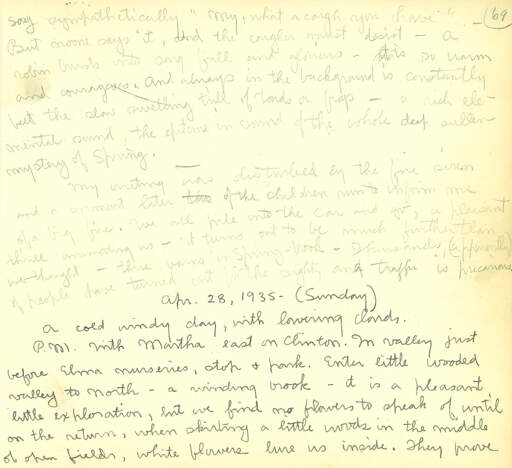 say sympathetically "My, what a cough you have". (69
But none says it, and the cougher must desist – a
robin bursts into song full and glorious – it is so warm
and courageous. And always in the background is constantly
felt the slow swelling trill of toads or frogs – a rich ele-
mental sound, the epitome in sound of the whole deep sullen
mystery of Spring.
My writing was disturbed by the fire siren
and a moment later two of the children run to inform me
of a big fire. We all pile into the car and go, a pleasant
three minutes – it turns out to be much further than
we thought – three barns in Springbrook – Thousands (apparently)
of people have turned out for the sight, and traffic is precarious
Apr. 28, 1935 – (Sunday)
A cold windy day, with lowering clouds.
P.M. with Martha east on Clinton. In valley just
before Elma nurseries, stop & park. Enter little wooded
valley to north – a winding brook – it is a pleasant
little exploration, but we find no flowers to speak of, until
on the return, when skirting a little woods in the middle
of open fields, white flowers lure us inside. They prove